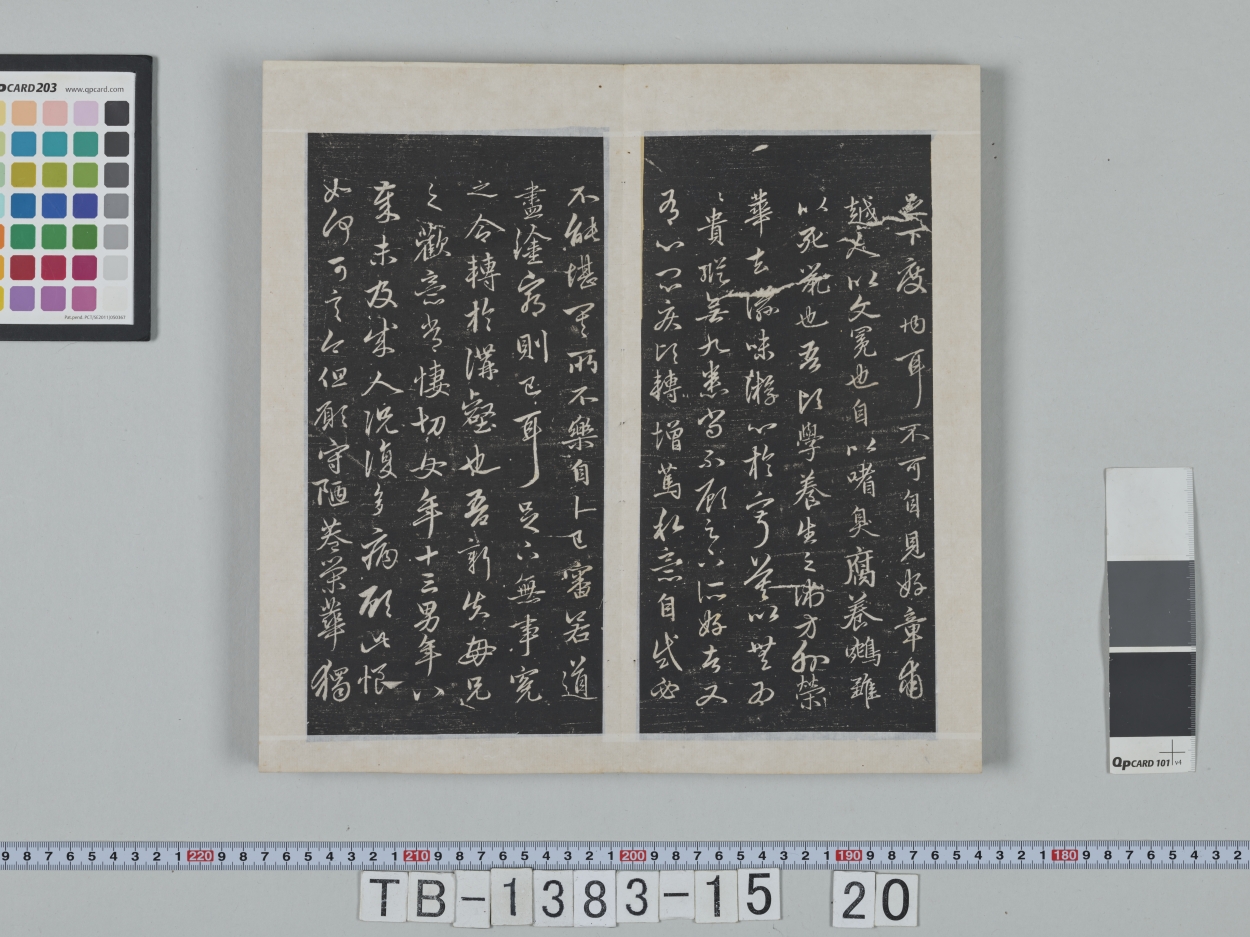 足下度內耳不可自見好章甫
越人以文冕也自以嗜臭腐養鵷雛
以死鼠也吾頃學養生之術方外榮
華去滋味游心於寂寞以無為
〻貴縱無九患尚不顧足下所好者又
有心悶疾頃轉增篤私意自試必
不能堪其所不樂自卜已審若道
盡塗窮則已耳足下無事冤
之令轉於溝壑也吾新失母兄
之歡意常悽切女年十三男年八
歲未及成人況復多病顧此恨〻
如何可言今但願守陋巷榮華獨
QPCARD 203 www.qpcard.com
QPCARD 101 v4
9 8 7 6 5 4 3 2 1 220 9 8 7 6 5 4 3 2 1 210 9 8 7 6 5 4 3 2 1 200 9 8 7 6 5 4 3 2 1 190 9 8 7 6 5 4 3 2 1 180 9 8 7 6 5 4 3 2
TB-1383-15 20